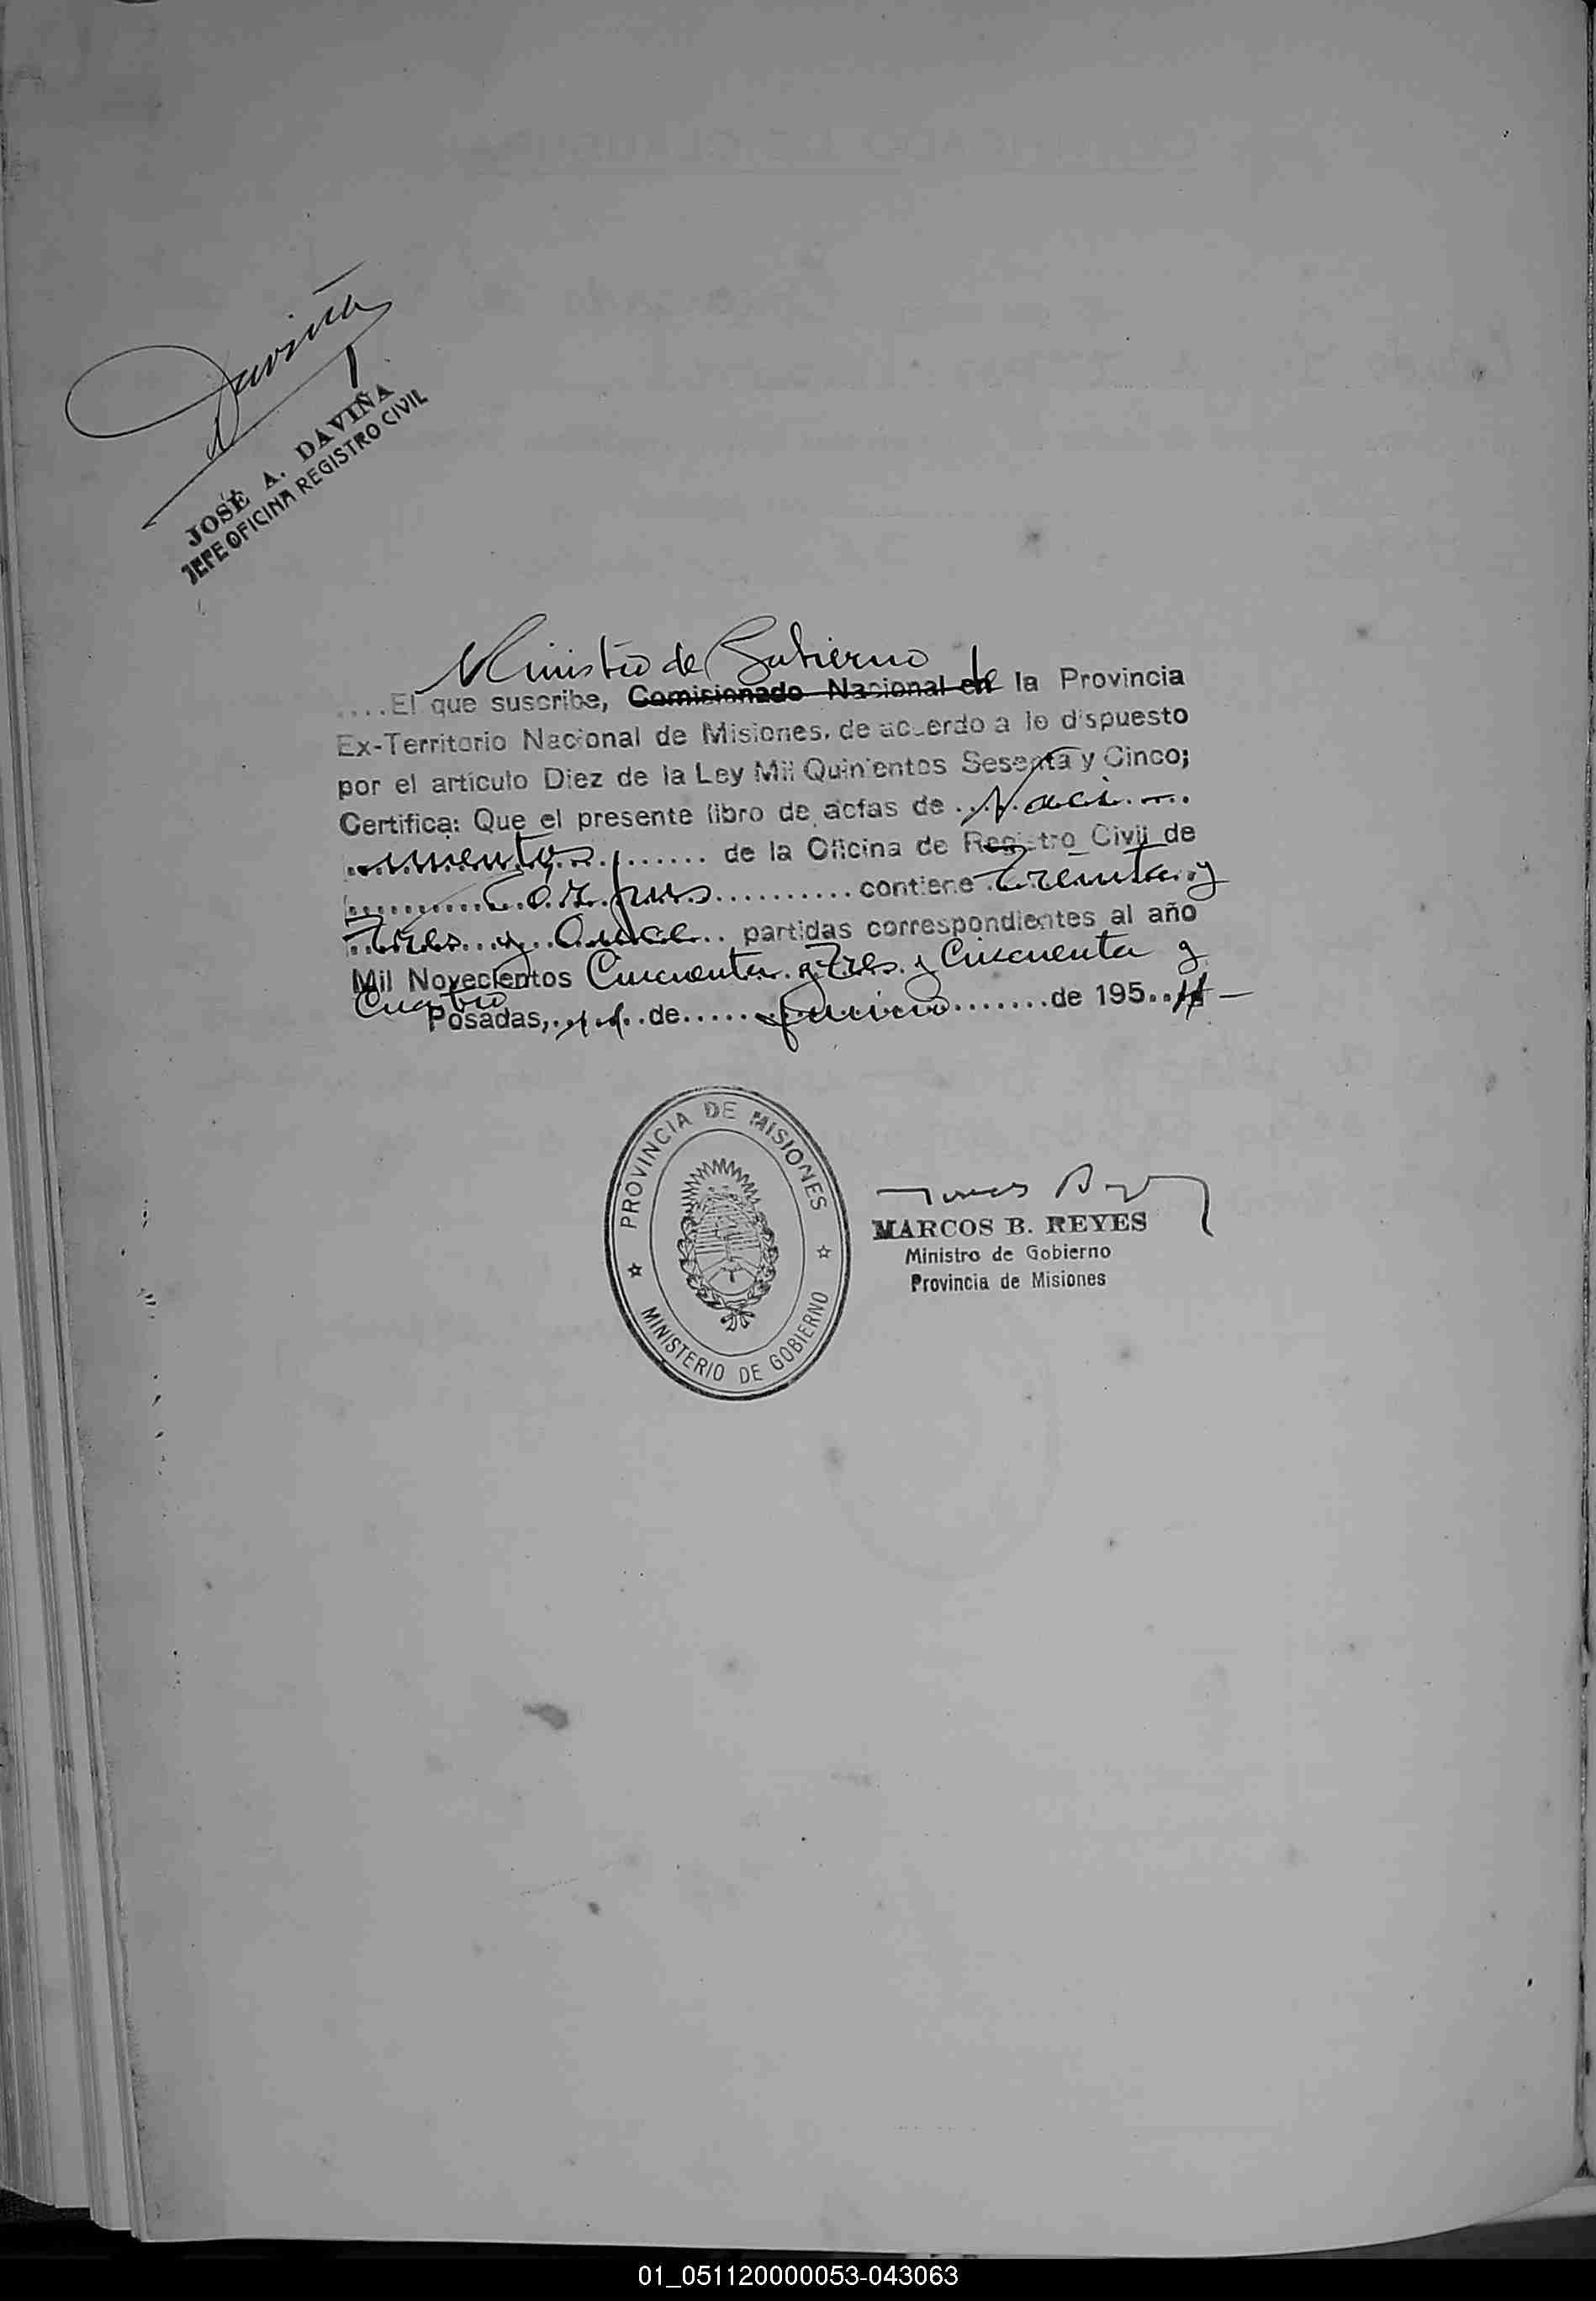 Daviña
JOSÉ A. DAVIÑA
JEFE OFICINA REGISTRO CIVIL
Ministro de Gobierno
....El que suscribe, Comisionado Nacional en de la Provincia
Ex-Territorio Nacional de Misiones, de acuerdo a lo dispuesto
por el artículo Diez de la Ley Mil Quinientos Sesenta y Cinco;
Certifica: Que el presente libro de actas de Naci
mientos de la Oficina de Registro Civil de
Corpus contiene Treinta y
Tres y Once partidas correspondientes al año
Mil Novecientos Cincuenta y Tres y Cincuenta y
Cuatro
Posadas, de Junio de 195
PROVINCIA DE MISIONES
MINISTERIO DE GOBIERNO
MARCOS B. REYES
Ministro de Gobierno
Provincia de Misiones
01_051120000053-043063